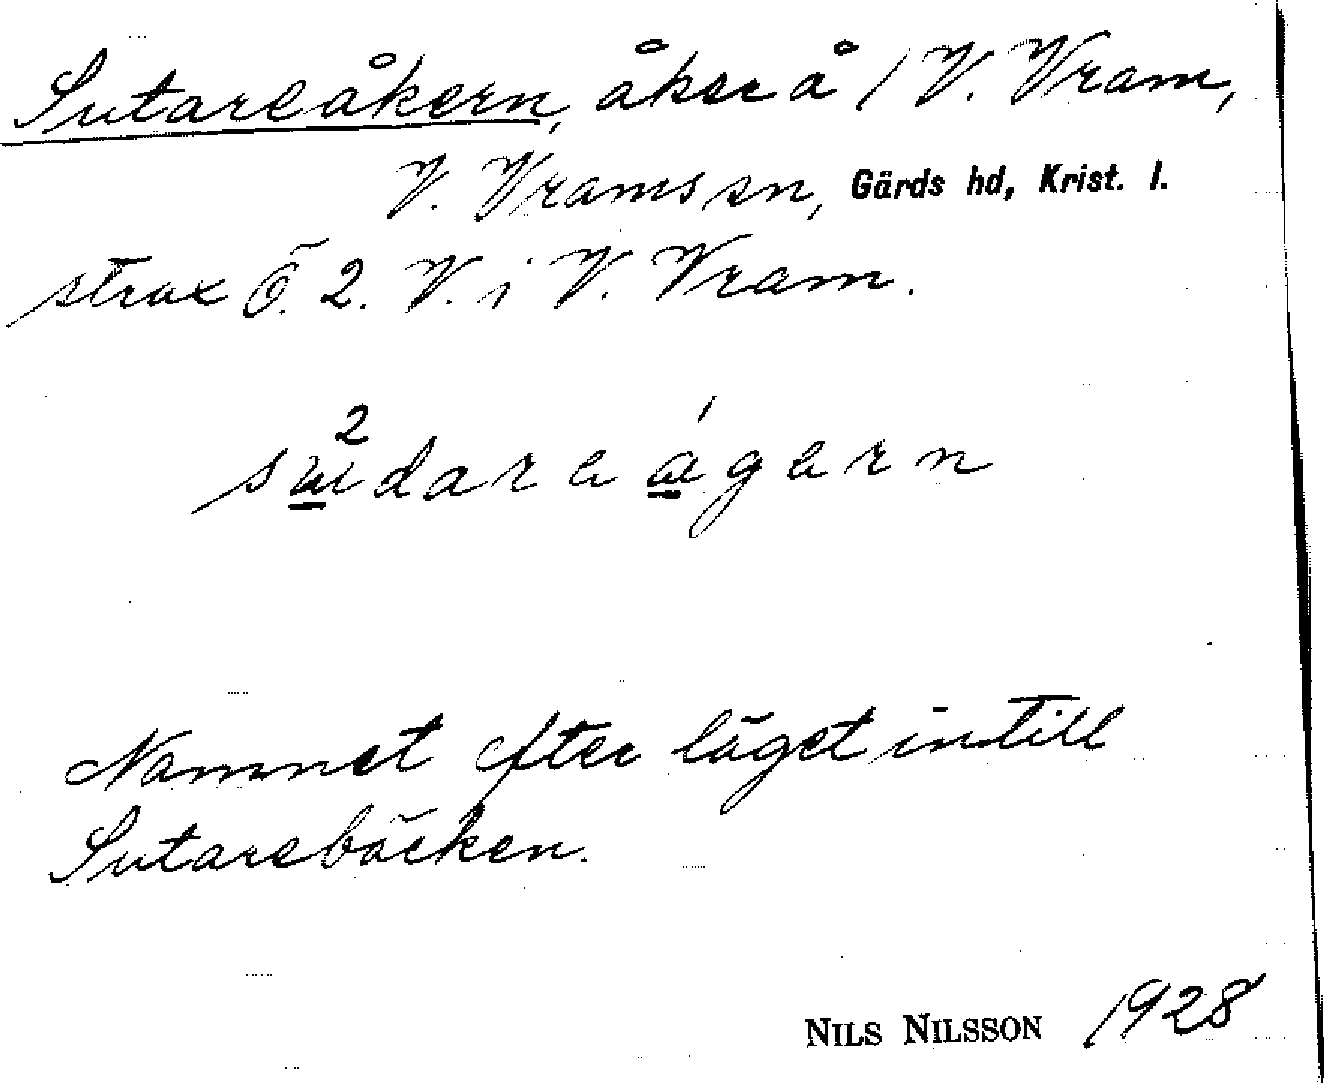 Sutareåkern, åker å 1 V. Vram,
V. Vrams sn, Gärds hd, Krist. l.
strax Ö. 2. V. i V. Vram.
Namnet efter läget intill
Sutarebäcken.
NILS NILSSON 1928